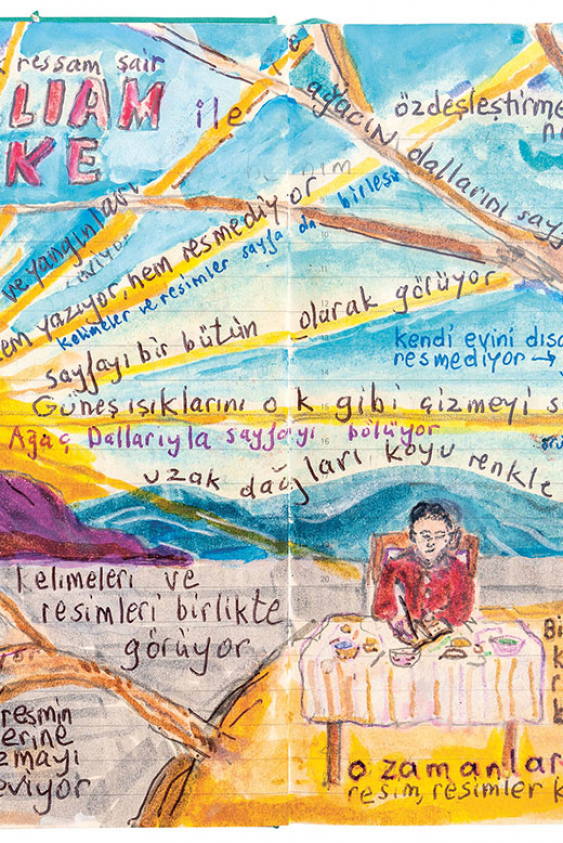 ressam şair
LIAM
KE
ile
ağacın dallarını sayf
özdeşleştirme
ne
ve yangınları
hem yazıyor, hem resmediyor
kelimeler ve resimler sayfa da birleşir
sayfayı bir bütün olarak görüyor
kendi evini dışa
resmediyor →
Güneş ışıklarını ok gibi çizmeyi s
Ağaç Dallarıyla sayfayı bölüyor
uzak dağları koyu renkle
kelimeleri ve
resimleri birlikte
görüyor
resmin
erine
zmayı
eviyor
Bi
k
r
k
o zamanlar
resim, resimler k